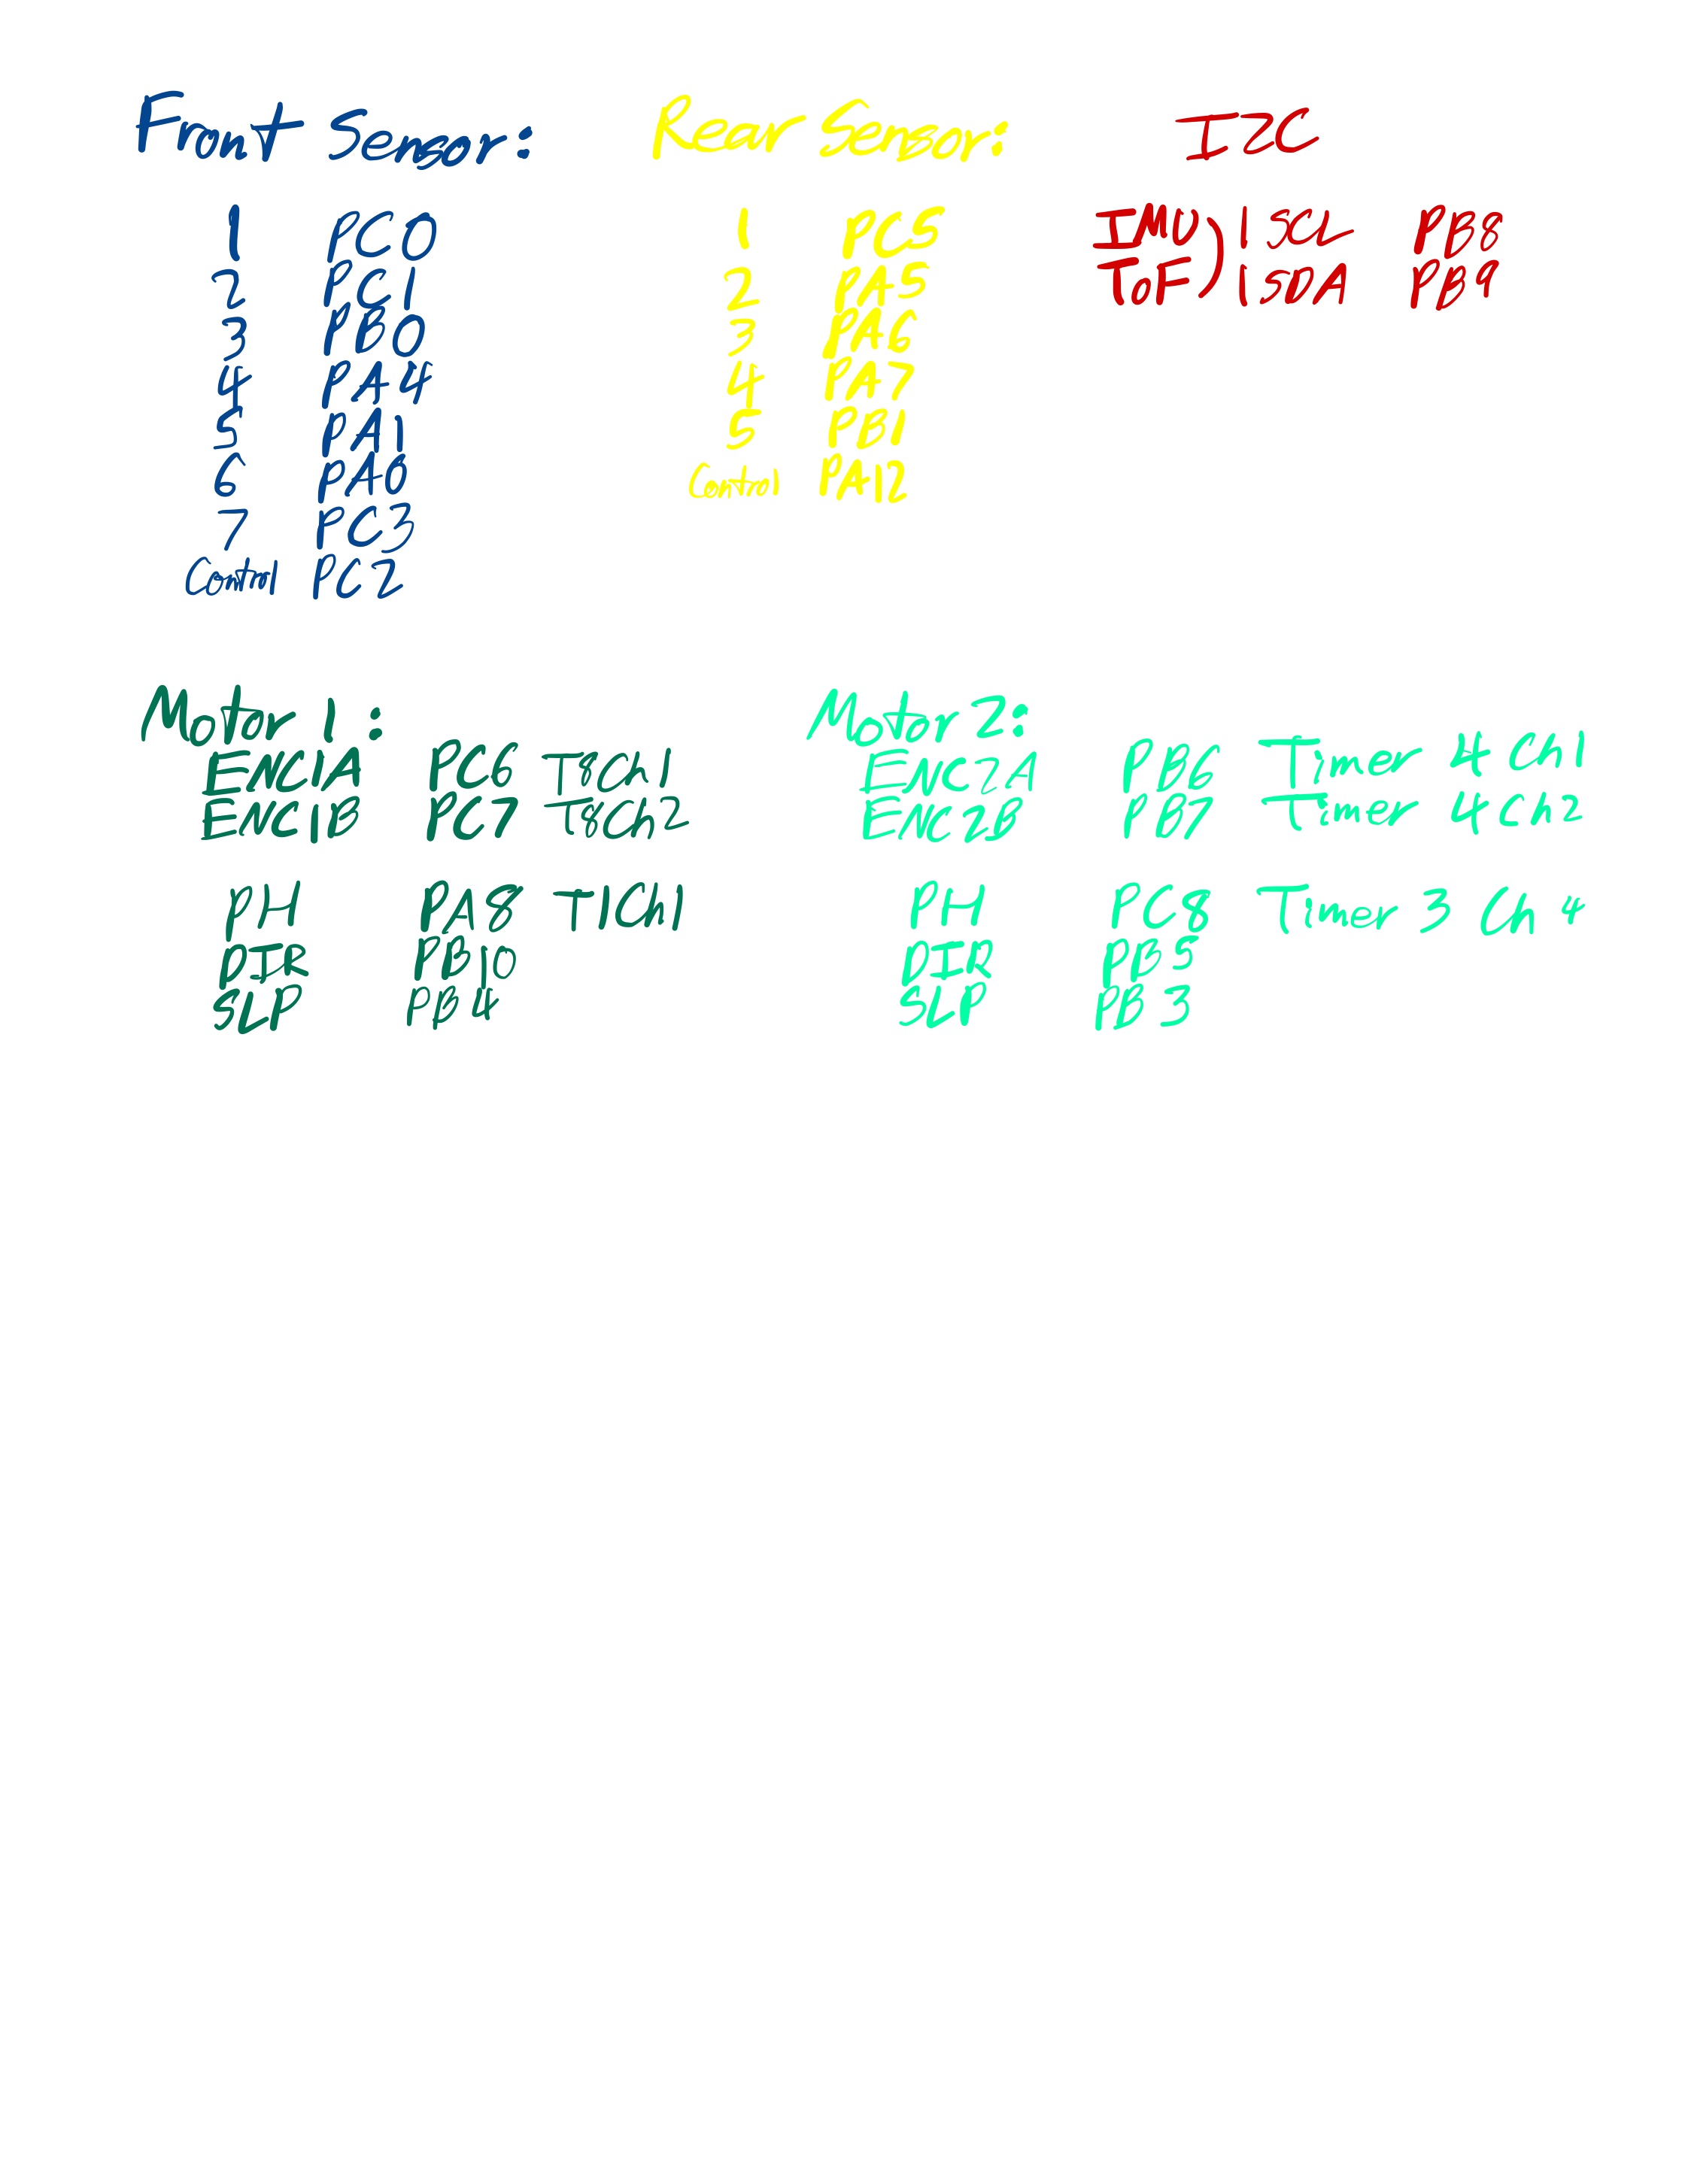 Front Sensor:
1 PC0
2 PC1
3 PB0
4 PA4
5 PA1
6 PA0
7 PC3
Control PC2
Rear Sensor:
1 PC5
2 PA5
3 PA6
4 PA7
5 PB1
Control PA12
I2C
IMU 1 SCL PB8
ToF 1 SDA PB9
Motor 1:
ENC1A PC6 T8Ch1
ENC1B PC7 T8Ch2
PH PA8 T1Ch1
DIR PB10
SLP PB4
Motor 2:
ENC2A PB6 Timer 4 Ch1
ENC2B PB7 Timer 4 Ch2
PH PC8 Timer 3 Ch 4
DIR PB5
SLP PB3